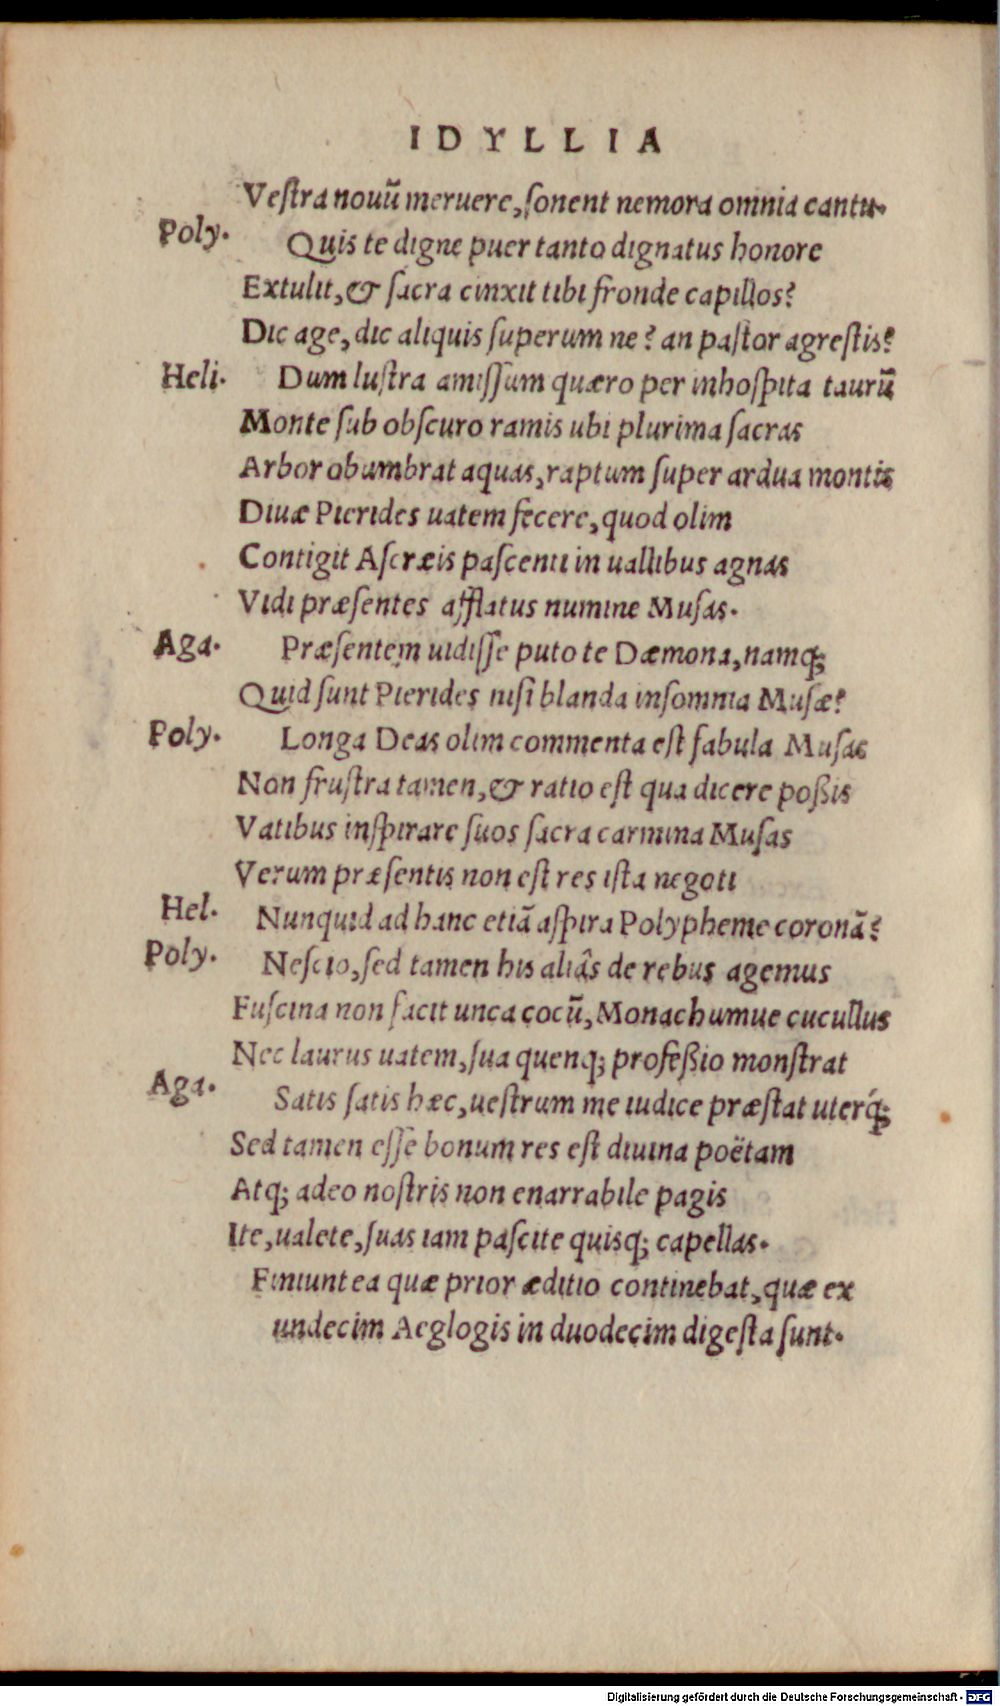 IDYLLIA
Veſtra nouū meruere, ſonent nemora omnia cantu.
Poly. Quis te digne puer tanto dignatus honore
Extulit, & ſacra cinxit tibi fronde capillos?
Dic age, dic aliquis ſuperum ne? an paſtor agreſtis?
Heli. Dum luſtra amiſſum quæro per inhoſpita taurū
Monte ſub obſcuro ramis ubi plurima ſacras
Arbor obumbrat aquas, raptum ſuper ardua montis
Diuæ Pierides uatem fecere, quod olim
Contigit Aſcræis paſcenti in uallibus agnas
Vidi præſentes afflatus numine Muſas.
Aga. Præſentem uidiſſe puto te Dæmona, namq;
Quid ſunt Pierides niſi blanda inſomnia Muſæ?
Poly. Longa Deas olim commenta eſt fabula Muſas
Non fruſtra tamen, & ratio eſt qua dicere poßis
Vatibus inſpirare ſuos ſacra carmina Muſas
Verum præſentis non eſt res iſta negoti
Hel. Nunquid ad hanc etiā aſpira Polypheme coronā?
Poly. Neſcio, ſed tamen his aliâs de rebus agemus
Fuſcina non facit unca cocū, Monachumue cucullus
Nec laurus uatem, ſua quenq; profeßio monſtrat
Aga. Satis ſatis hæc, ueſtrum me iudice præſtat uterq́;
Sed tamen eſſe bonum res eſt diuina poëtam
Atq; adeo noſtris non enarrabile pagis
Ite, ualete, ſuas iam paſcite quisq; capellas.
Finiunt ea quæ prior æditio continebat, quæ ex
undecim Aeglogis in duodecim digeſta ſunt.
Digitalisierung gefördert durch die Deutsche Forschungsgemeinschaft - DFG